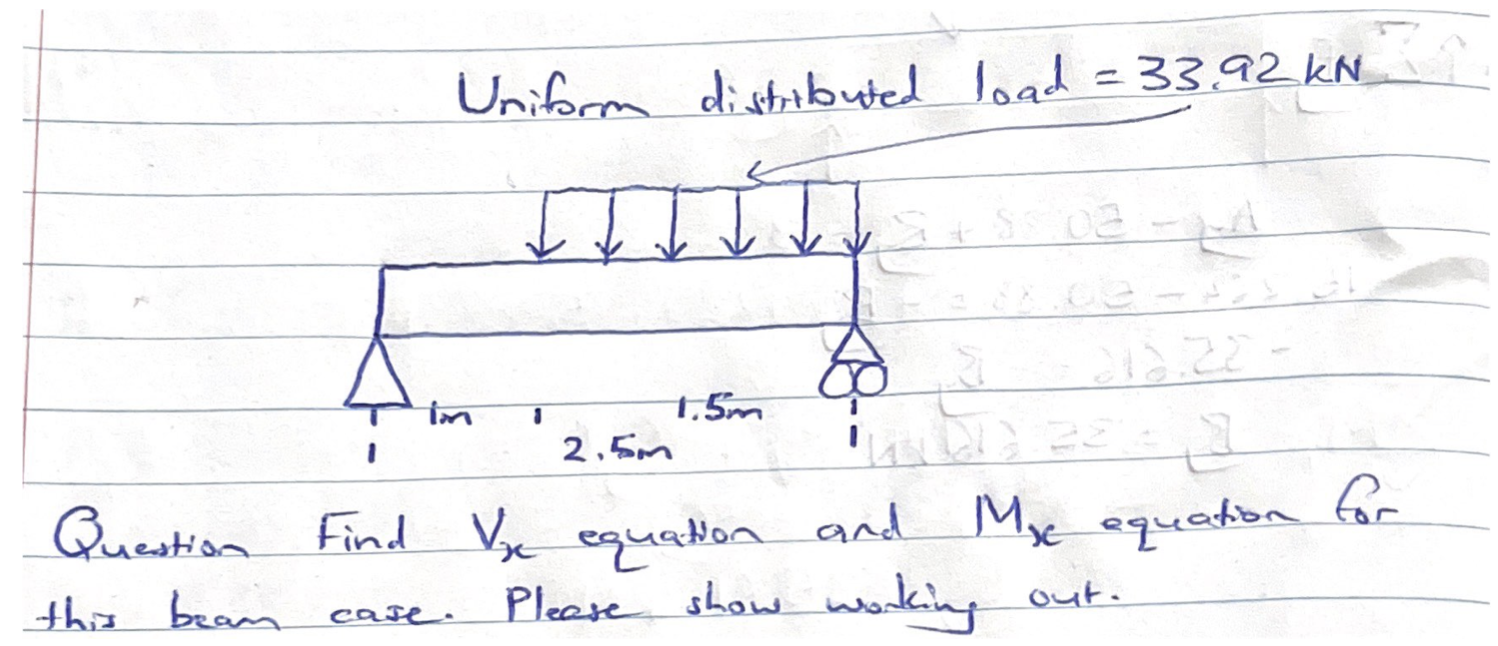 Uniform distributed load = 33.92 kN
1m 1.5m
2.5m
Question Find Vx equation and Mx equation for
this beam case. Please show working out.